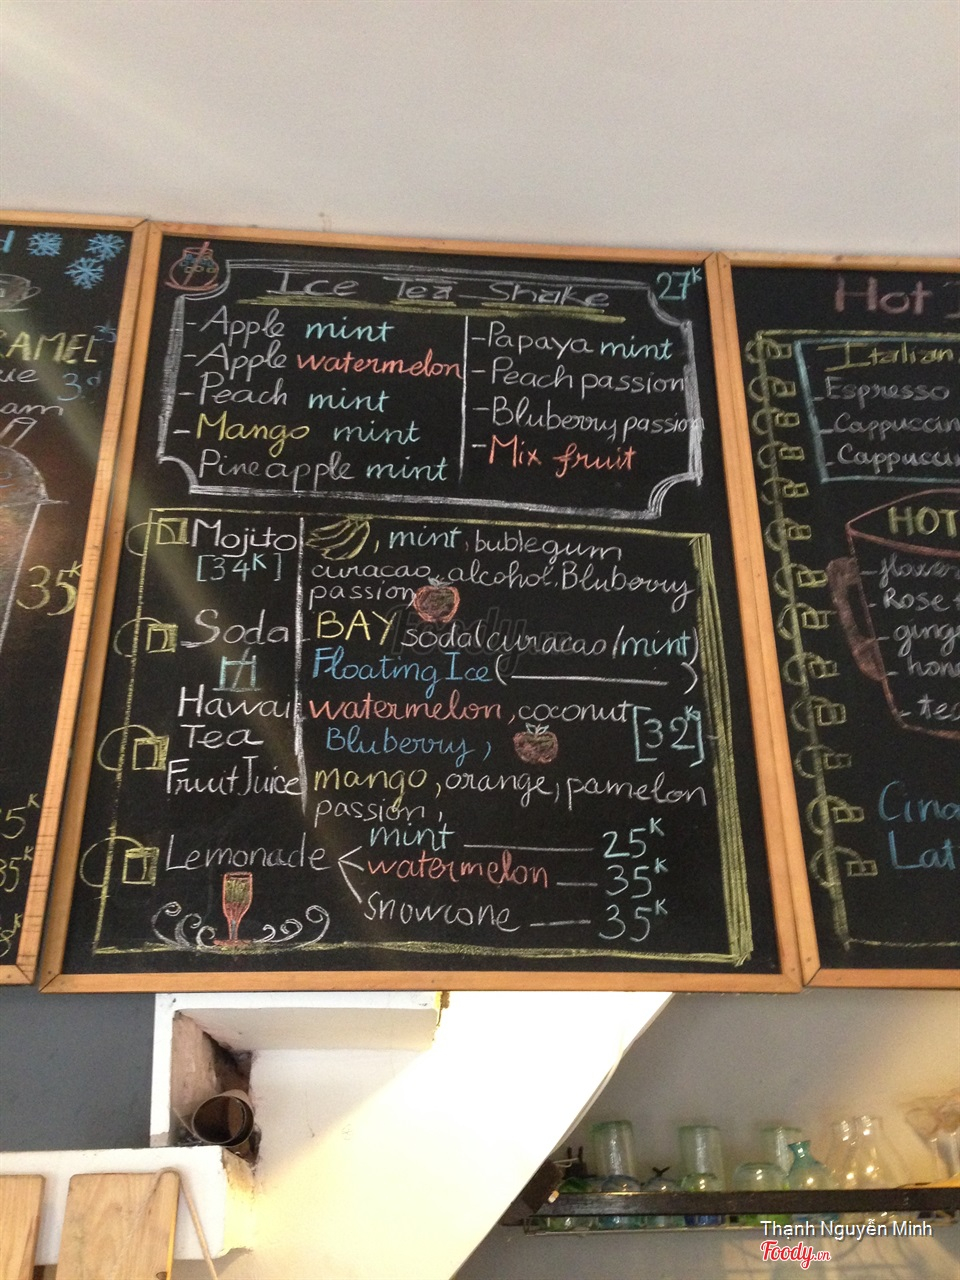 RAMEL
35K
Ice Tea Shake 27K
- Apple mint
- Apple watermelon
- Peach mint
- Mango mint
Pineapple mint
- Papaya mint
- Peach passion
- Bluberry passion
- Mix fruit
Mojito , mint, bublegum
[34K] curacao, alcohol. Bluberry
passion
Soda BAY soda(curacao/mint)
Floating Ice ( )
Hawai watermelon, coconut
Tea Bluberry, [32K]
Fruit Juice mango, orange, pamelon
passion,
Lemonade mint 25K
watermelon 35K
snowcone 35K
Hot
Italian
Espresso
Cappuccin
Cappucci
HOT
- flower
- Rose +
- ginge
- hone
- tea
Cina
Lat
35K
Foody.vn
Thanh Nguyễn Minh
Foody.vn